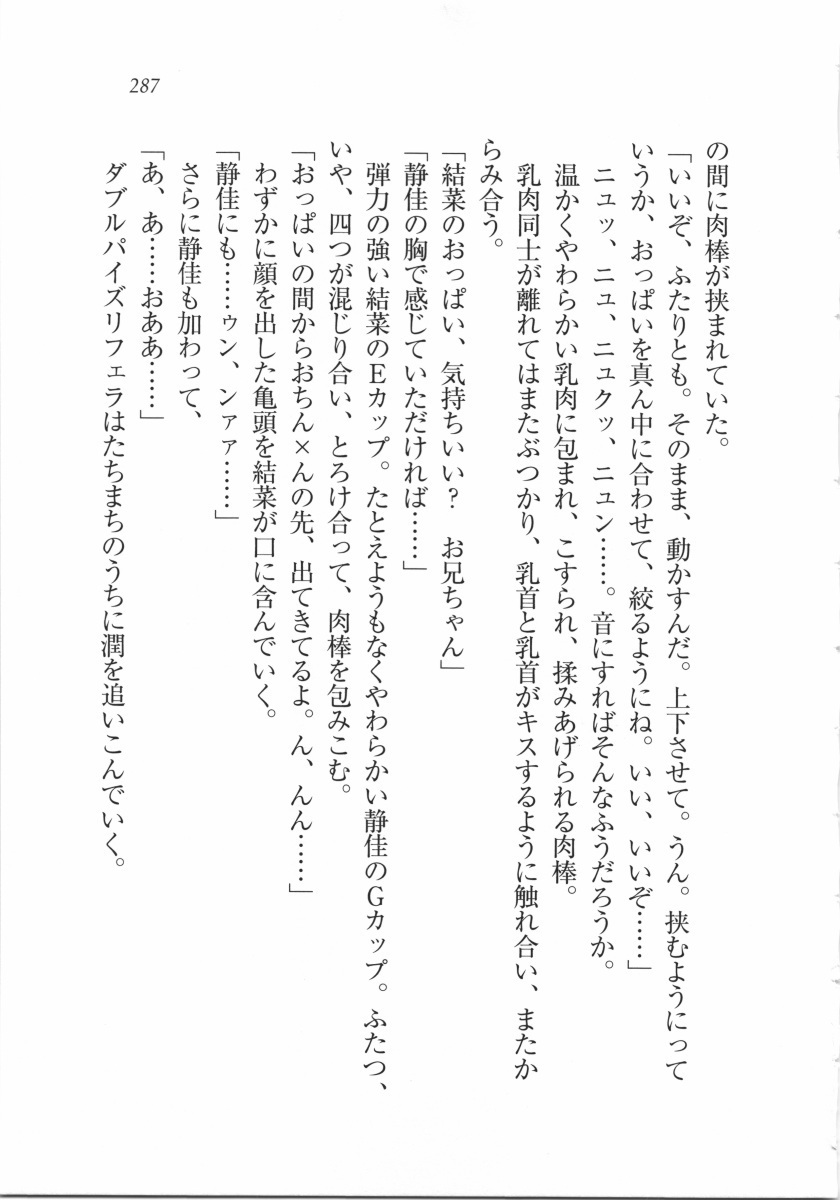 287
の間に肉棒が挟まれていた。
「いいぞ、ふたりとも。そのまま、動かすんだ。上下させて。うん。挟むようにって
いうか、おっぱいを真ん中に合わせて、絞るようにね。いい、いいぞ……」
ニュッ、ニュ、ニュクッ、ニュン……。音にすればそんなふうだろうか。
温かくやわらかい乳肉に包まれ、こすられ、揉みあげられる肉棒。
乳肉同士が離れてはまたぶつかり、乳首と乳首がキスするように触れ合い、またか
らみ合う。
「結菜のおっぱい、気持ちいい？　お兄ちゃん」
「静佳の胸で感じていただければ……」
弾力の強い結菜のEカップ。たとえようもなくやわらかい静佳のGカップ。ふたつ、
いや、四つが混じり合い、とろけ合って、肉棒を包みこむ。
「おっぱいの間からおちん×んの先、出てきてるよ。ん、んん……」
わずかに顔を出した亀頭を結菜が口に含んでいく。
「静佳にも……ゥン、ンァァ……」
さらに静佳も加わって、
「あ、あ……おああ……」
ダブルパイズリフェラはたちまちのうちに潤を追いこんでいく。